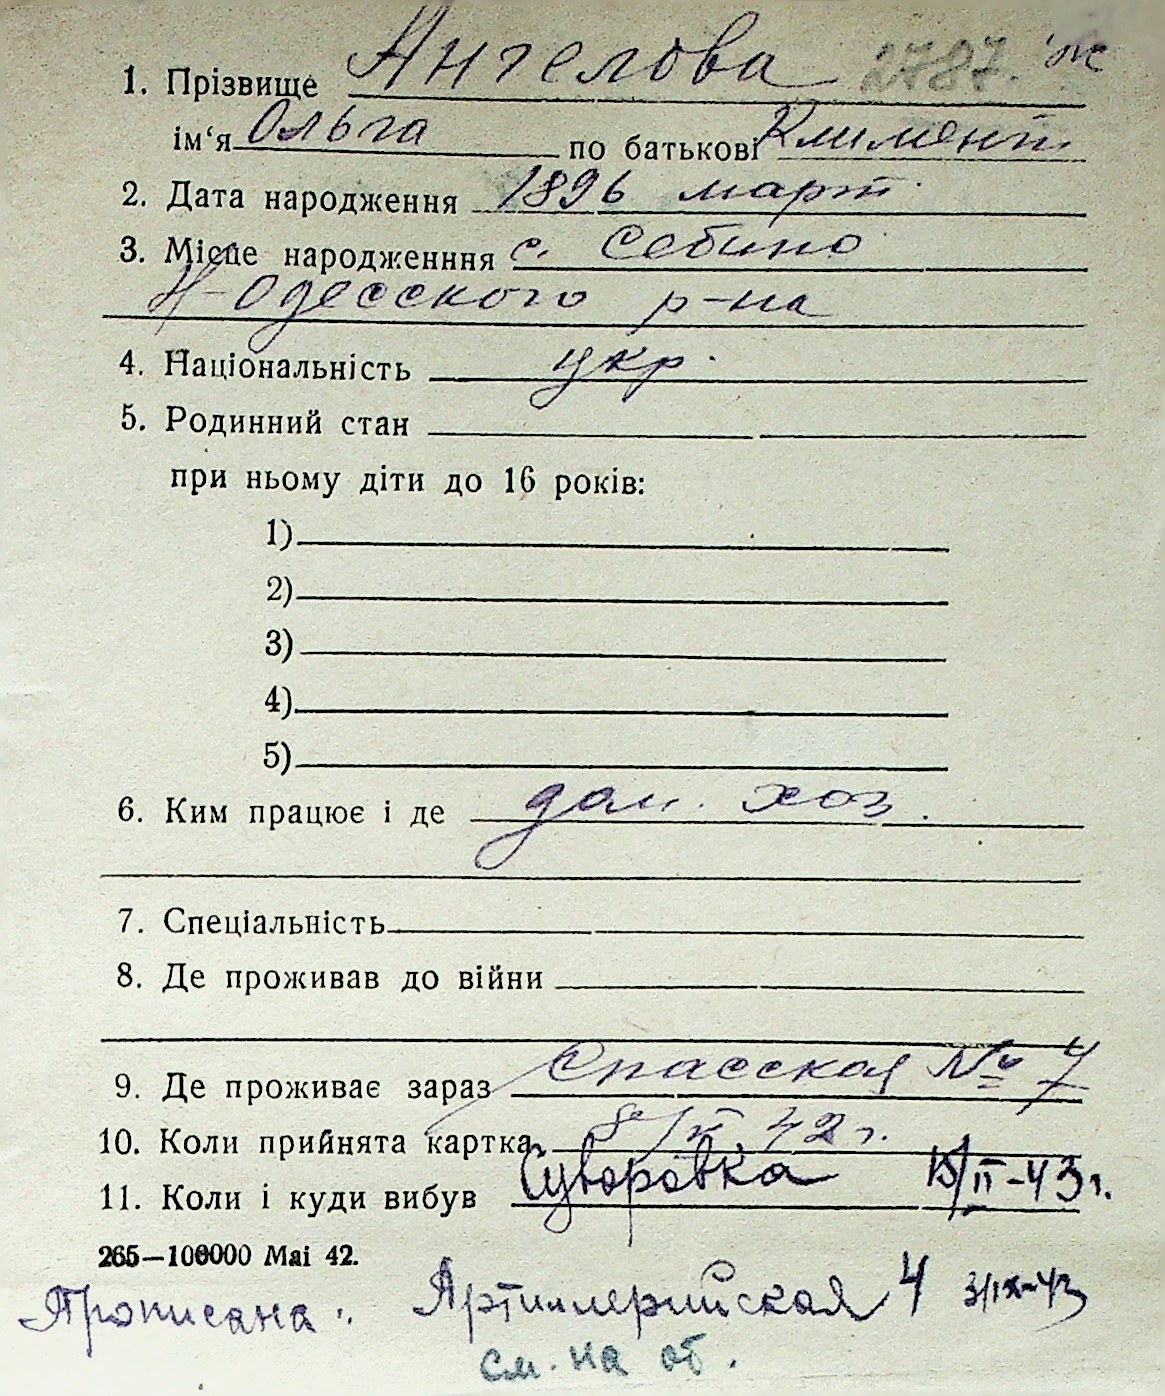 1. Прізвище Ангелова 2787. ж
ім‘я Ольга по батькові Климент.
2. Дата народження 1896 март.
3. Місце народженння с. Себино
Н-Одесского р-на
4. Національність укр.
5. Родинний стан
при ньому діти до 16 років:
1)
2)
3)
4)
5)
6. Ким працює і де дом. хоз.
7. Спеціальність
8. Де проживав до війни
9. Де проживає зараз Спасская № 7
10. Коли прийнята картка 42 г.
11. Коли і куди вибув Суворовка 15/II-43 г.
265—100000 Маі 42.
Прописана: Артиллерийская 4 3/IX-43
см. на об.